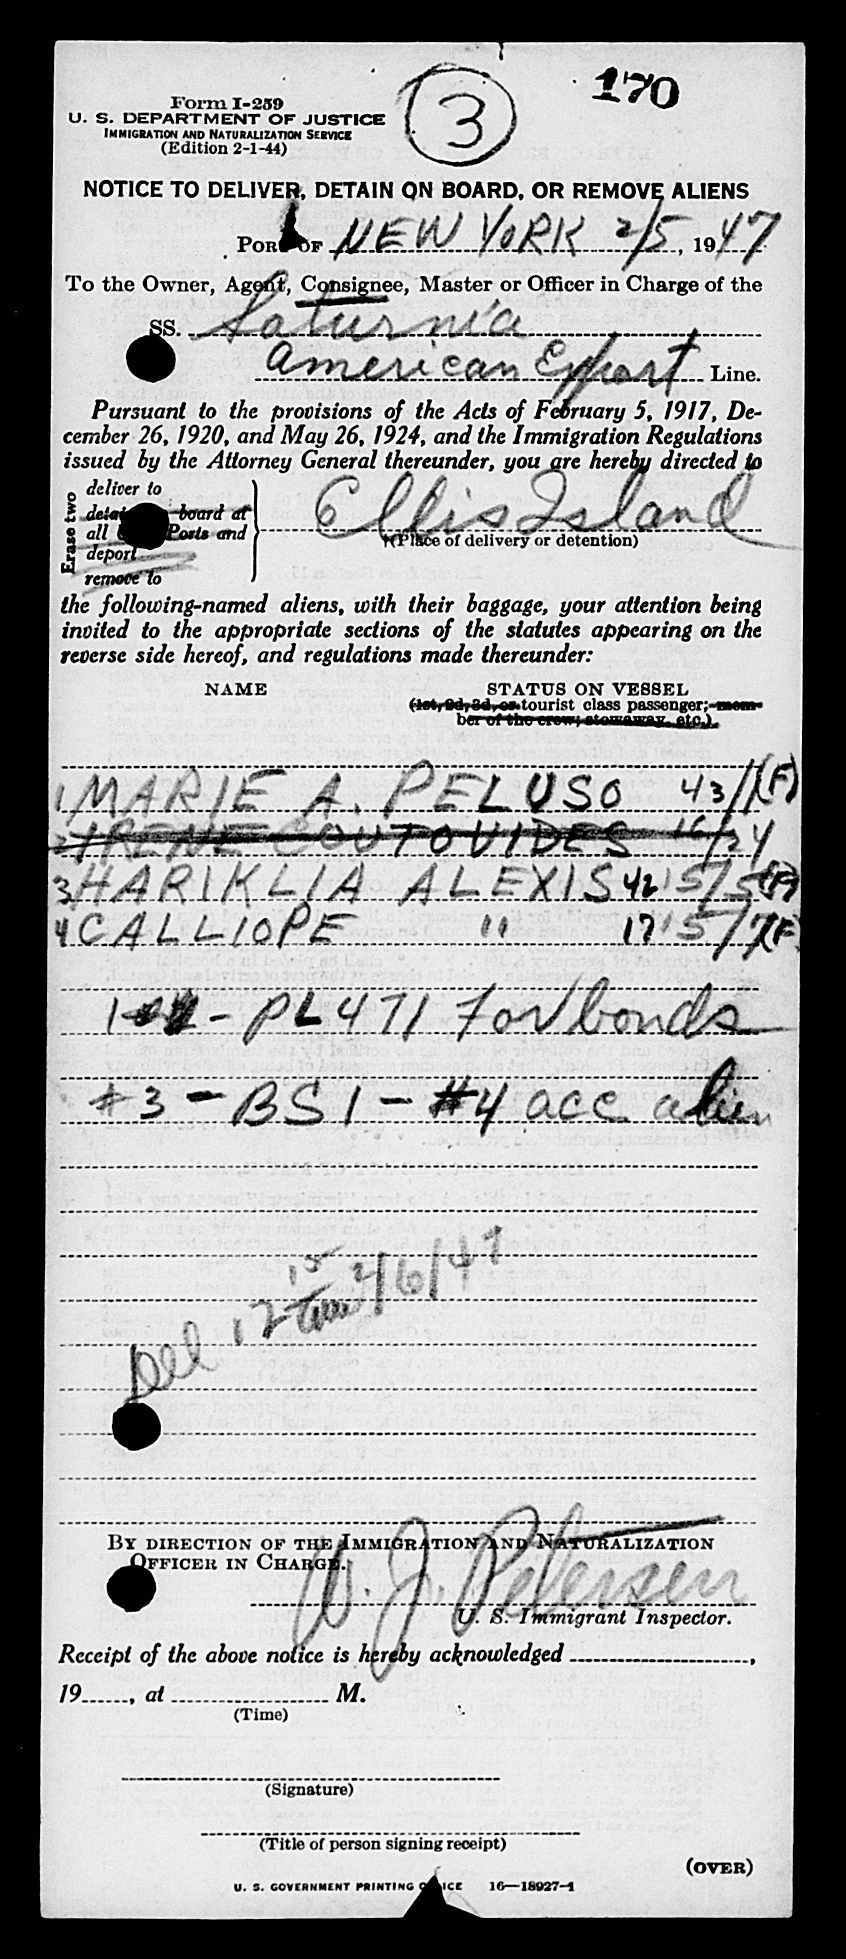 170
3
Form I-259
U. S. DEPARTMENT OF JUSTICE
IMMIGRATION AND NATURALIZATION SERVICE
(Edition 2-1-44)
NOTICE TO DELIVER, DETAIN ON BOARD, OR REMOVE ALIENS
PORT OF NEW YORK 2/5, 1947
To the Owner, Agent, Consignee, Master or Officer in Charge of the
SS. Saturnia
American Export Line.
Pursuant to the provisions of the Acts of February 5, 1917, De-
cember 26, 1920, and May 26, 1924, and the Immigration Regulations
issued by the Attorney General thereunder, you are hereby directed to
Erase two
deliver to
detain board at
all Ports and
deport
remove to
Ellis Island
(Place of delivery or detention)
the following-named aliens, with their baggage, your attention being
invited to the appropriate sections of the statutes appearing on the
reverse side hereof, and regulations made thereunder:
NAME STATUS ON VESSEL
(1st, 2d, 3d, or tourist class passenger; mem-
ber of the crew; stowaway, etc.)
1 MARIE A. PELUSO 43/1 (F)
2 IRENE COUTOVIDES 16/24
3 HARIKLIA ALEXIS 42 15/5 (F)
4 CALLIOPE " 17 15/7 (F)
1 - PL 471 For bonds
#3 - BSI - #4 acc alien
Del 12 15 am 2/6/47
BY DIRECTION OF THE IMMIGRATION AND NATURALIZATION
OFFICER IN CHARGE.
W. J. Petersen
U. S. Immigrant Inspector.
Receipt of the above notice is hereby acknowledged ,
19 , at M.
(Time)
(Signature)
(Title of person signing receipt)
(OVER)
U. S. GOVERNMENT PRINTING OFFICE 16—18927-1